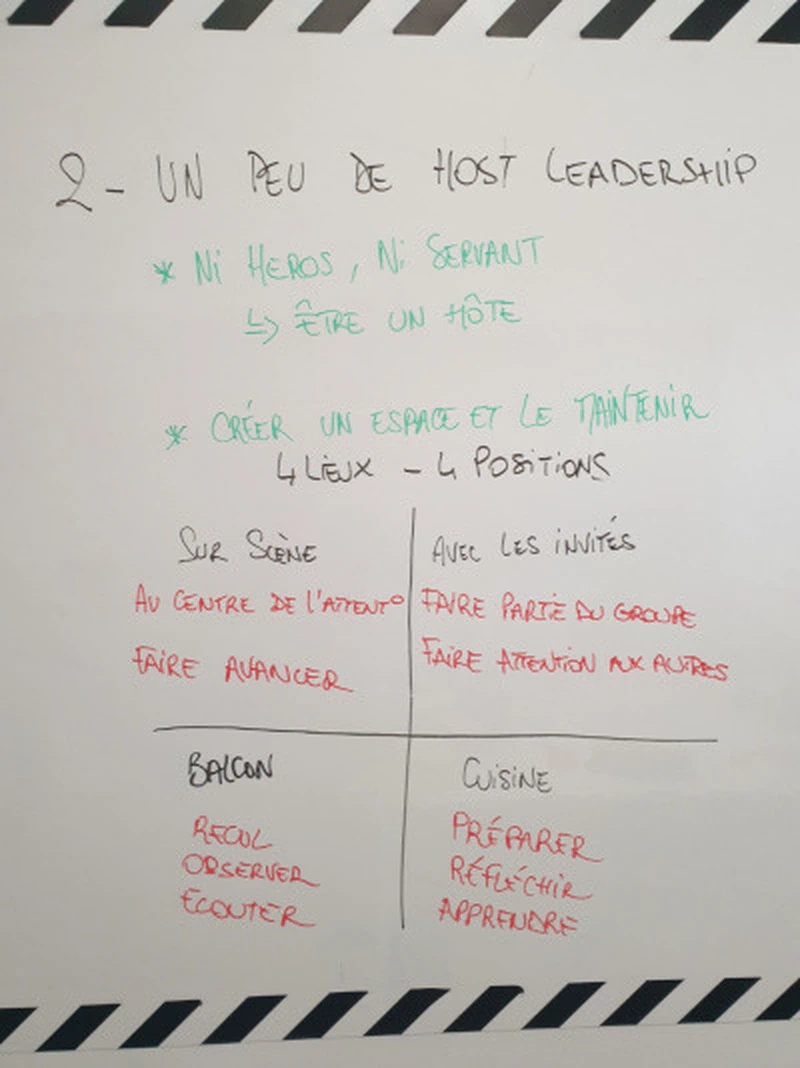 2- UN PEU DE HOST LEADERSHIP
* Ni HEROS, Ni SERVANT
↳ ÊTRE UN HÔTE
* CRÉER UN ESPACE ET LE MAINTENIR
4 LiEUX - 4 POSiTiONS
SUR SCÈNE
AU CENTRE DE L'ATTENT°
FAIRE AVANCER
AVEC LES iNViTÉS
FAIRE PARTiE DU GROUPE
FAIRE ATTENTION AUX AUTRES
BALCON
RECUL
OBSERVER
ECOUTER
CUiSiNE
PRÉPARER
RÉFLÉCHiR
APPRENDRE